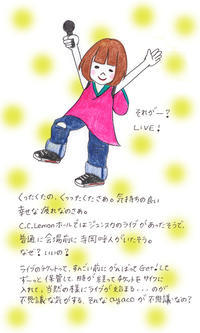 それがー？
LIVE！
くったくたの、くぅったくたさぁ。気持ちの良い
幸せな疲れなのさぁ。
C.C.Lemonホールではジュンスカのライブがあったそうで、
普通に会場前に寺岡呼人がいたそう。
なぜ？いいの？
ライブのチケットって、すんごい前にがんばってGetして
ずーっと保管して、日時が迫ってチケットをサイフに
入れて、当然の様にライブが始まる・・・のが
不思議な気がする。そんなayacoが不思議なの？